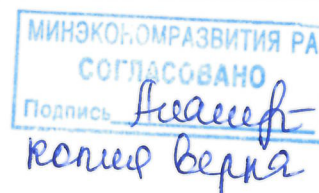 МИНЭКОНОМРАЗВИТИЯ РА
СОГЛАСОВАНО
Подпись
копия верна